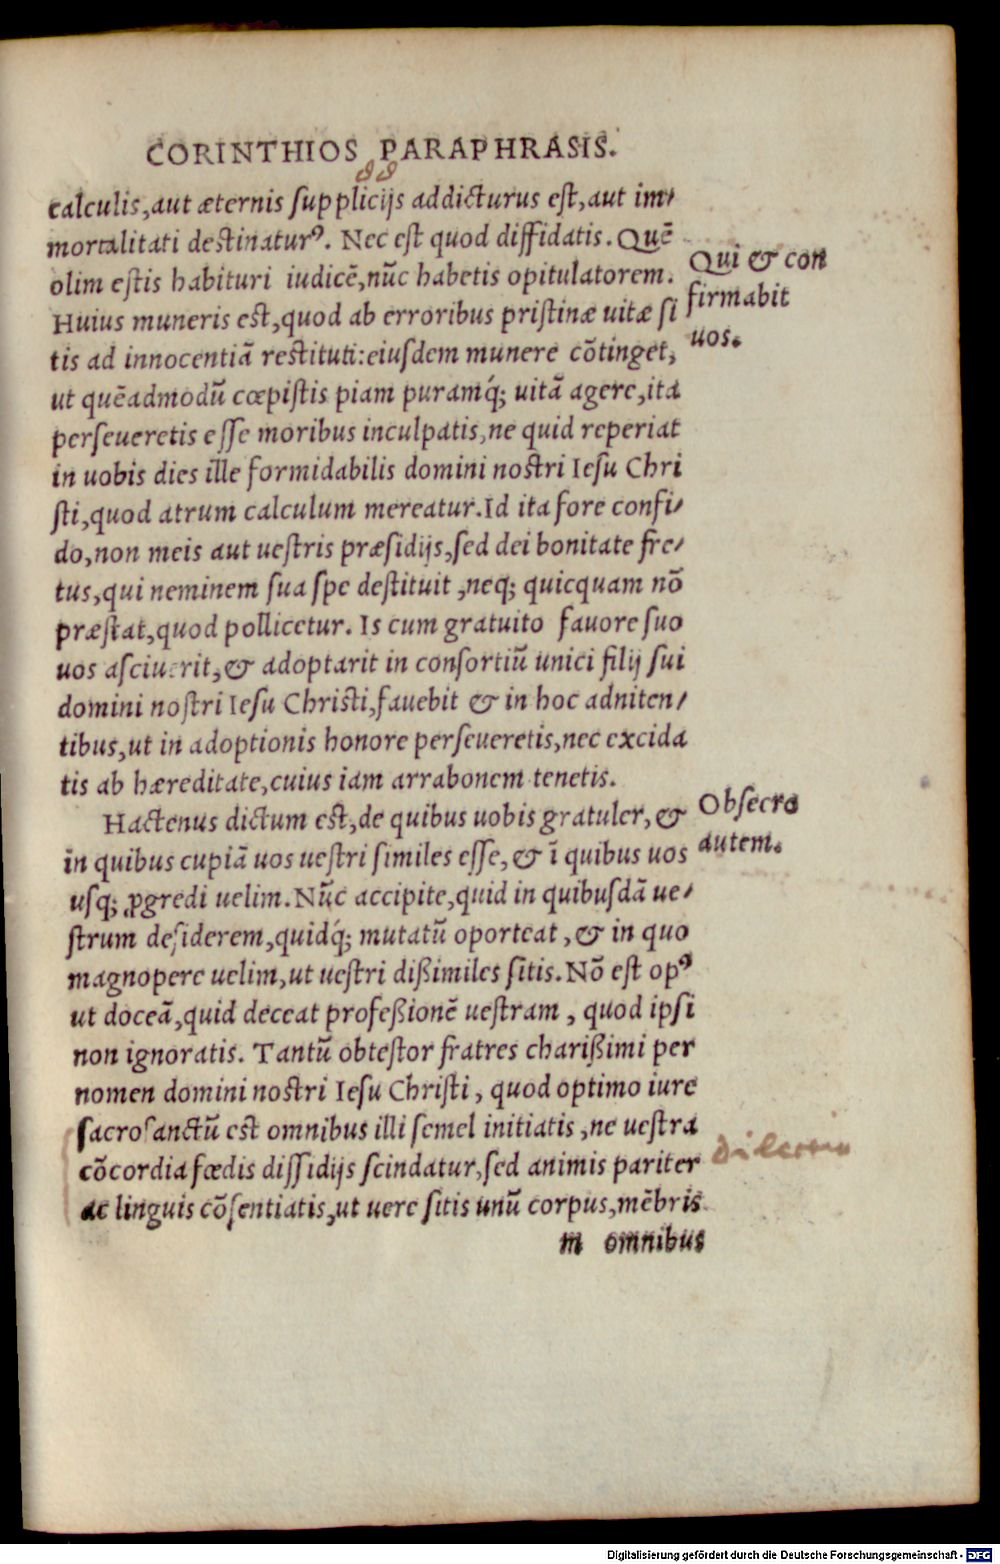 CORINTHIOS PARAPHRASIS.
calculis,aut æternis ſupplicijs addicturus eſt,aut im⸗
mortalitati deſtinaturꝰ. Nec eſt quod diffidatis. Quē
olim eſtis habituri iudicē,nūc habetis opitulatorem.
Qui & con
Huius muneris est,quod ab erroribus priſtinæ uitæ ſi
firmabit
tis ad innocentiā reſtituti:eiuſdem munere cōtinget,
uos.
ut quēadmodū cœpiſtis piam puramq́; uitā agere,ita
perſeueretis eſſe moribus inculpatis,ne quid reperiat
in uobis dies ille formidabilis domini noſtri Ieſu Chri
ſti,quod atrum calculum mereatur.Id ita fore confi⸗
do,non meis aut ueſtris præſidijs,ſed dei bonitate fre⸗
tus,qui neminem ſua ſpe deſtituit ,neq; quicquam nō
præſtat,quod pollicetur. Is cum gratuito fauore ſuo
uos aſciuerit,& adoptarit in conſortiū unici filij ſui
domini noſtri Ieſu Chriſti,fauebit & in hoc adniten⸗
tibus,ut in adoptionis honore perſeueretis,nec excida
tis ab hæreditate,cuius iam arrabonem tenetis.
Hactenus dictum eſt,de quibus uobis gratuler, &
Obſecro
in quibus cupiā uos ueſtri ſimiles eſſe, & ī quibus uos
autem.
uſq; ꝓgredi uelim. Nūc accipite,quid in quibuſdā ue⸗
ſtrum deſiderem,quidq́; mutatū oporteat ,& in quo
magnopere uelim,ut ueſtri dißimiles ſitis. Nō eſt opꝰ
ut doceā,quid deceat profeßionē ueſtram , quod ipſi
non ignoratis. Tantū obteſtor fratres charißimi per
nomen domini noſtri Ieſu Chriſti , quod optimo iure
ſacroſanctū eſt omnibus illi ſemel initiatis ,ne ueſtra
cōcordia fœdis diſſidijs ſcindatur,ſed animis pariter
ac linguis cōſentiatis,ut uere ſitis unū corpus,mēbris
m omnibus
Digitalisierung gefördert durch die Deutsche Forschungsgemeinschaft - DFG